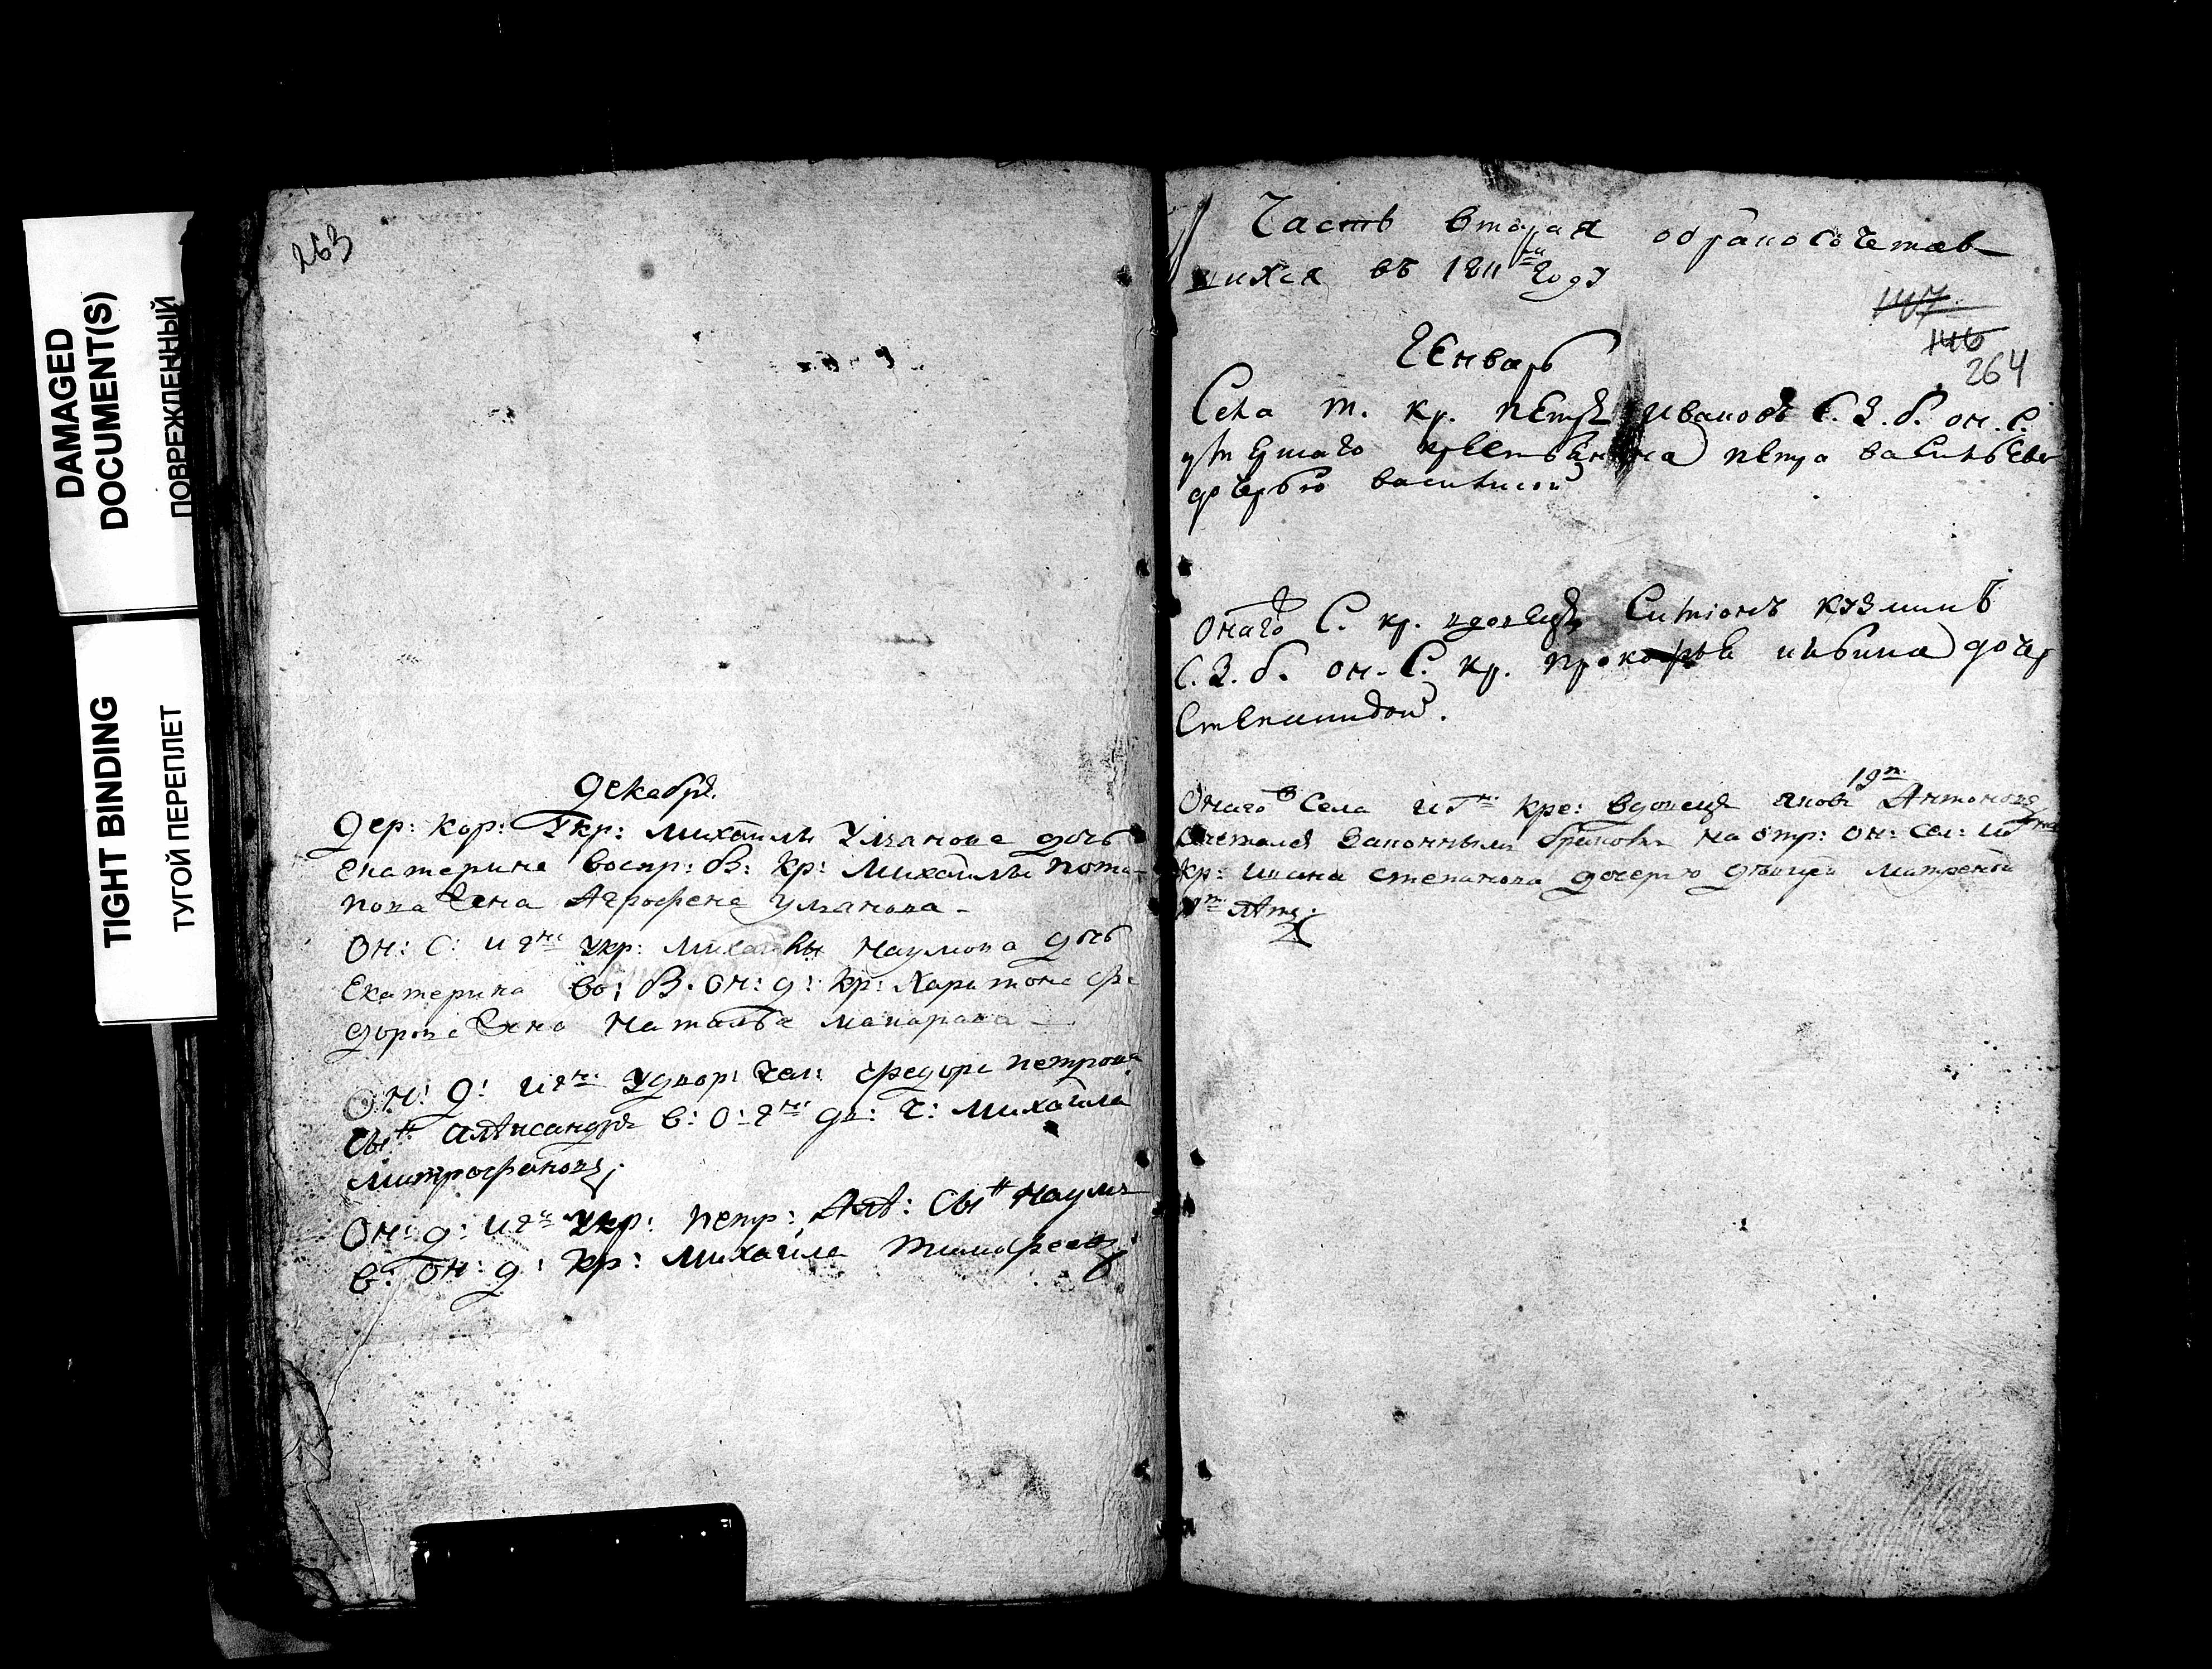 DAMAGED
DOCUMENT(S)
ПОВРЕЖДЕННЫЙ
TIGHT BINDING
ТУГОЙ ПЕРЕПЛЕТ
263
Декабрь
Дер: Кор: У кр: Михайлы Ульянова дочь
Екатерина воспр: в: кр: Михайлы Пота-
пова жена Агрофена Ульянова
Он: С: и д укр: Михайлы Наумова дочь
Екатерина во: в. он: д: кр: Харитона Фе
дорова жена Наталья Макарова
Он: д: и г У двор: чел: Федора Петрова
сын Александръ в: о: г дв: ч: Михайла
Митрофановъ
Он: д: и г У кр: Петр: Алѣ: сын Наумъ
в: он: д: кр: Михайла Тимофеевъ
Часть вторая о брако сочетав
шихся въ 1811 году
147
146
264
Генварь
Села т. кр. Петръ Ивановъ С. З. б. он. С.
умершаго крестьянина Петра Васильева
дочерью Василисой
Онаго С. кр. вдовецъ Симionъ Кузминъ
С. З. б. он. С. кр. Прокофья Ильина дочер
Степанидой.
19
Онаго Села кре: вдовецъ Яковъ Антоновъ
Сочетался Законнымъ бракомъ на отр: он: сел:
кр: Ивана Степанова дочерью девицей Матреной